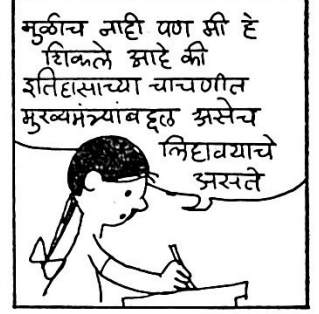 मुळीच नाही पण मी हे
शिकले आहे की
इतिहासाच्या चाचणीत
मुख्यमंत्र्यांबद्दल असेच
लिहावयाचे
असते